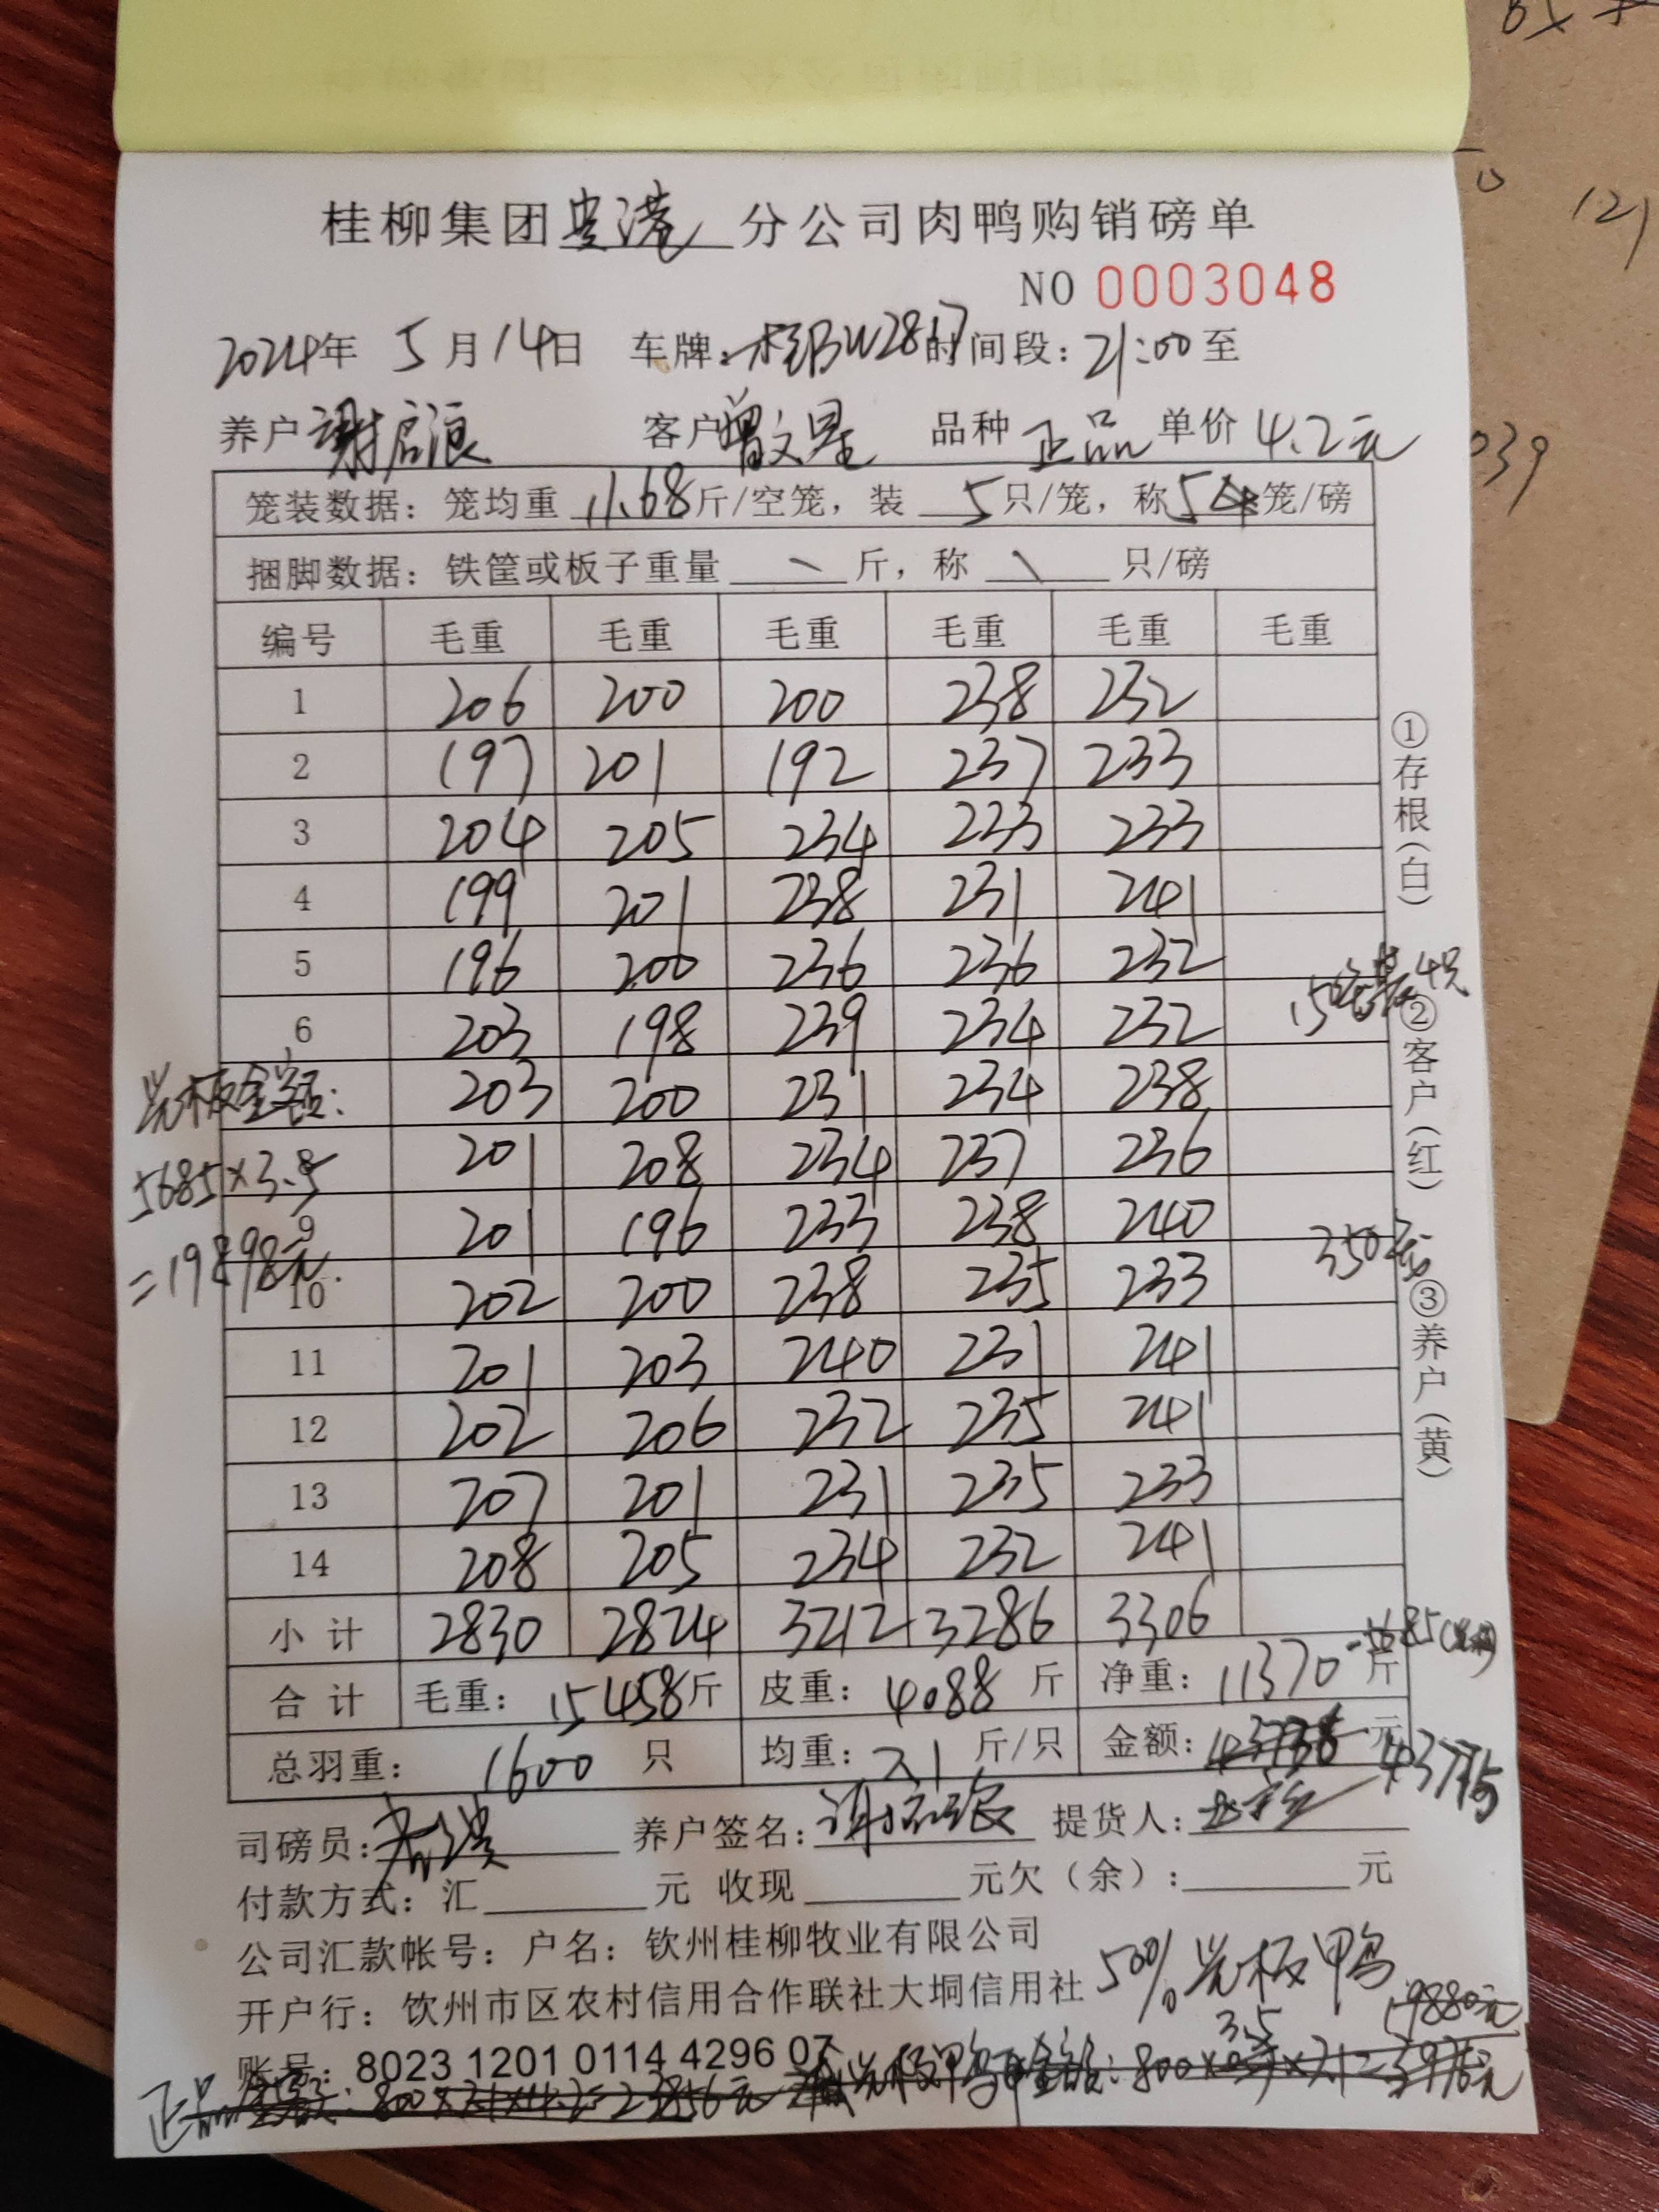 桂柳集团贵港分公司肉鸭购销磅单
NO 0003048
2024年 5月14日 车牌:桂BW2817 时间段:21:00至
养户谢启浪 客户曾文星 品种 正品 单价 4.2元
笼装数据：笼均重 11.68斤/空笼，装 5只/笼，称54笼/磅
捆脚数据：铁筐或板子重量 \ 斤，称 \ 只/磅
编号 毛重 毛重 毛重 毛重 毛重 毛重
1 206 200 200 238 232
2 197 201 192 237 233
3 204 205 234 233 233
4 199 201 238 231 241
5 196 200 236 236 232
6 203 198 239 234 232
203 200 231 234 238
8 201 208 234 237 236
9 201 196 233 238 240
10 202 200 238 235 233
11 201 203 240 231 241
12 202 206 232 235 241
13 207 201 231 235 233
14 208 205 234 232 241
小计 2830 2824 3212 3286 3306
合计 毛重：15458斤 皮重：4088斤 净重：11370斤
总羽重：1600 只 均重：7.1 斤/只 金额： 元
司磅员: 养户签名: 提货人:
付款方式：汇 元 收现 元欠（余）: 元
公司汇款帐号：户名：钦州桂柳牧业有限公司
开户行：钦州市区农村信用合作联社大垌信用社
账号：8023 1201 0114 4296 07
50%光板鸭
19880元
正品金额：800×7.1×4.2=23856元
光板鸭金额：800×3.5×7.1=
光板金额:
5685×3.5
=19898元
①存根（白）
②客户（红）
③养户（黄）
150笼装4只
350笼
-5685(光板)
43775
121
039